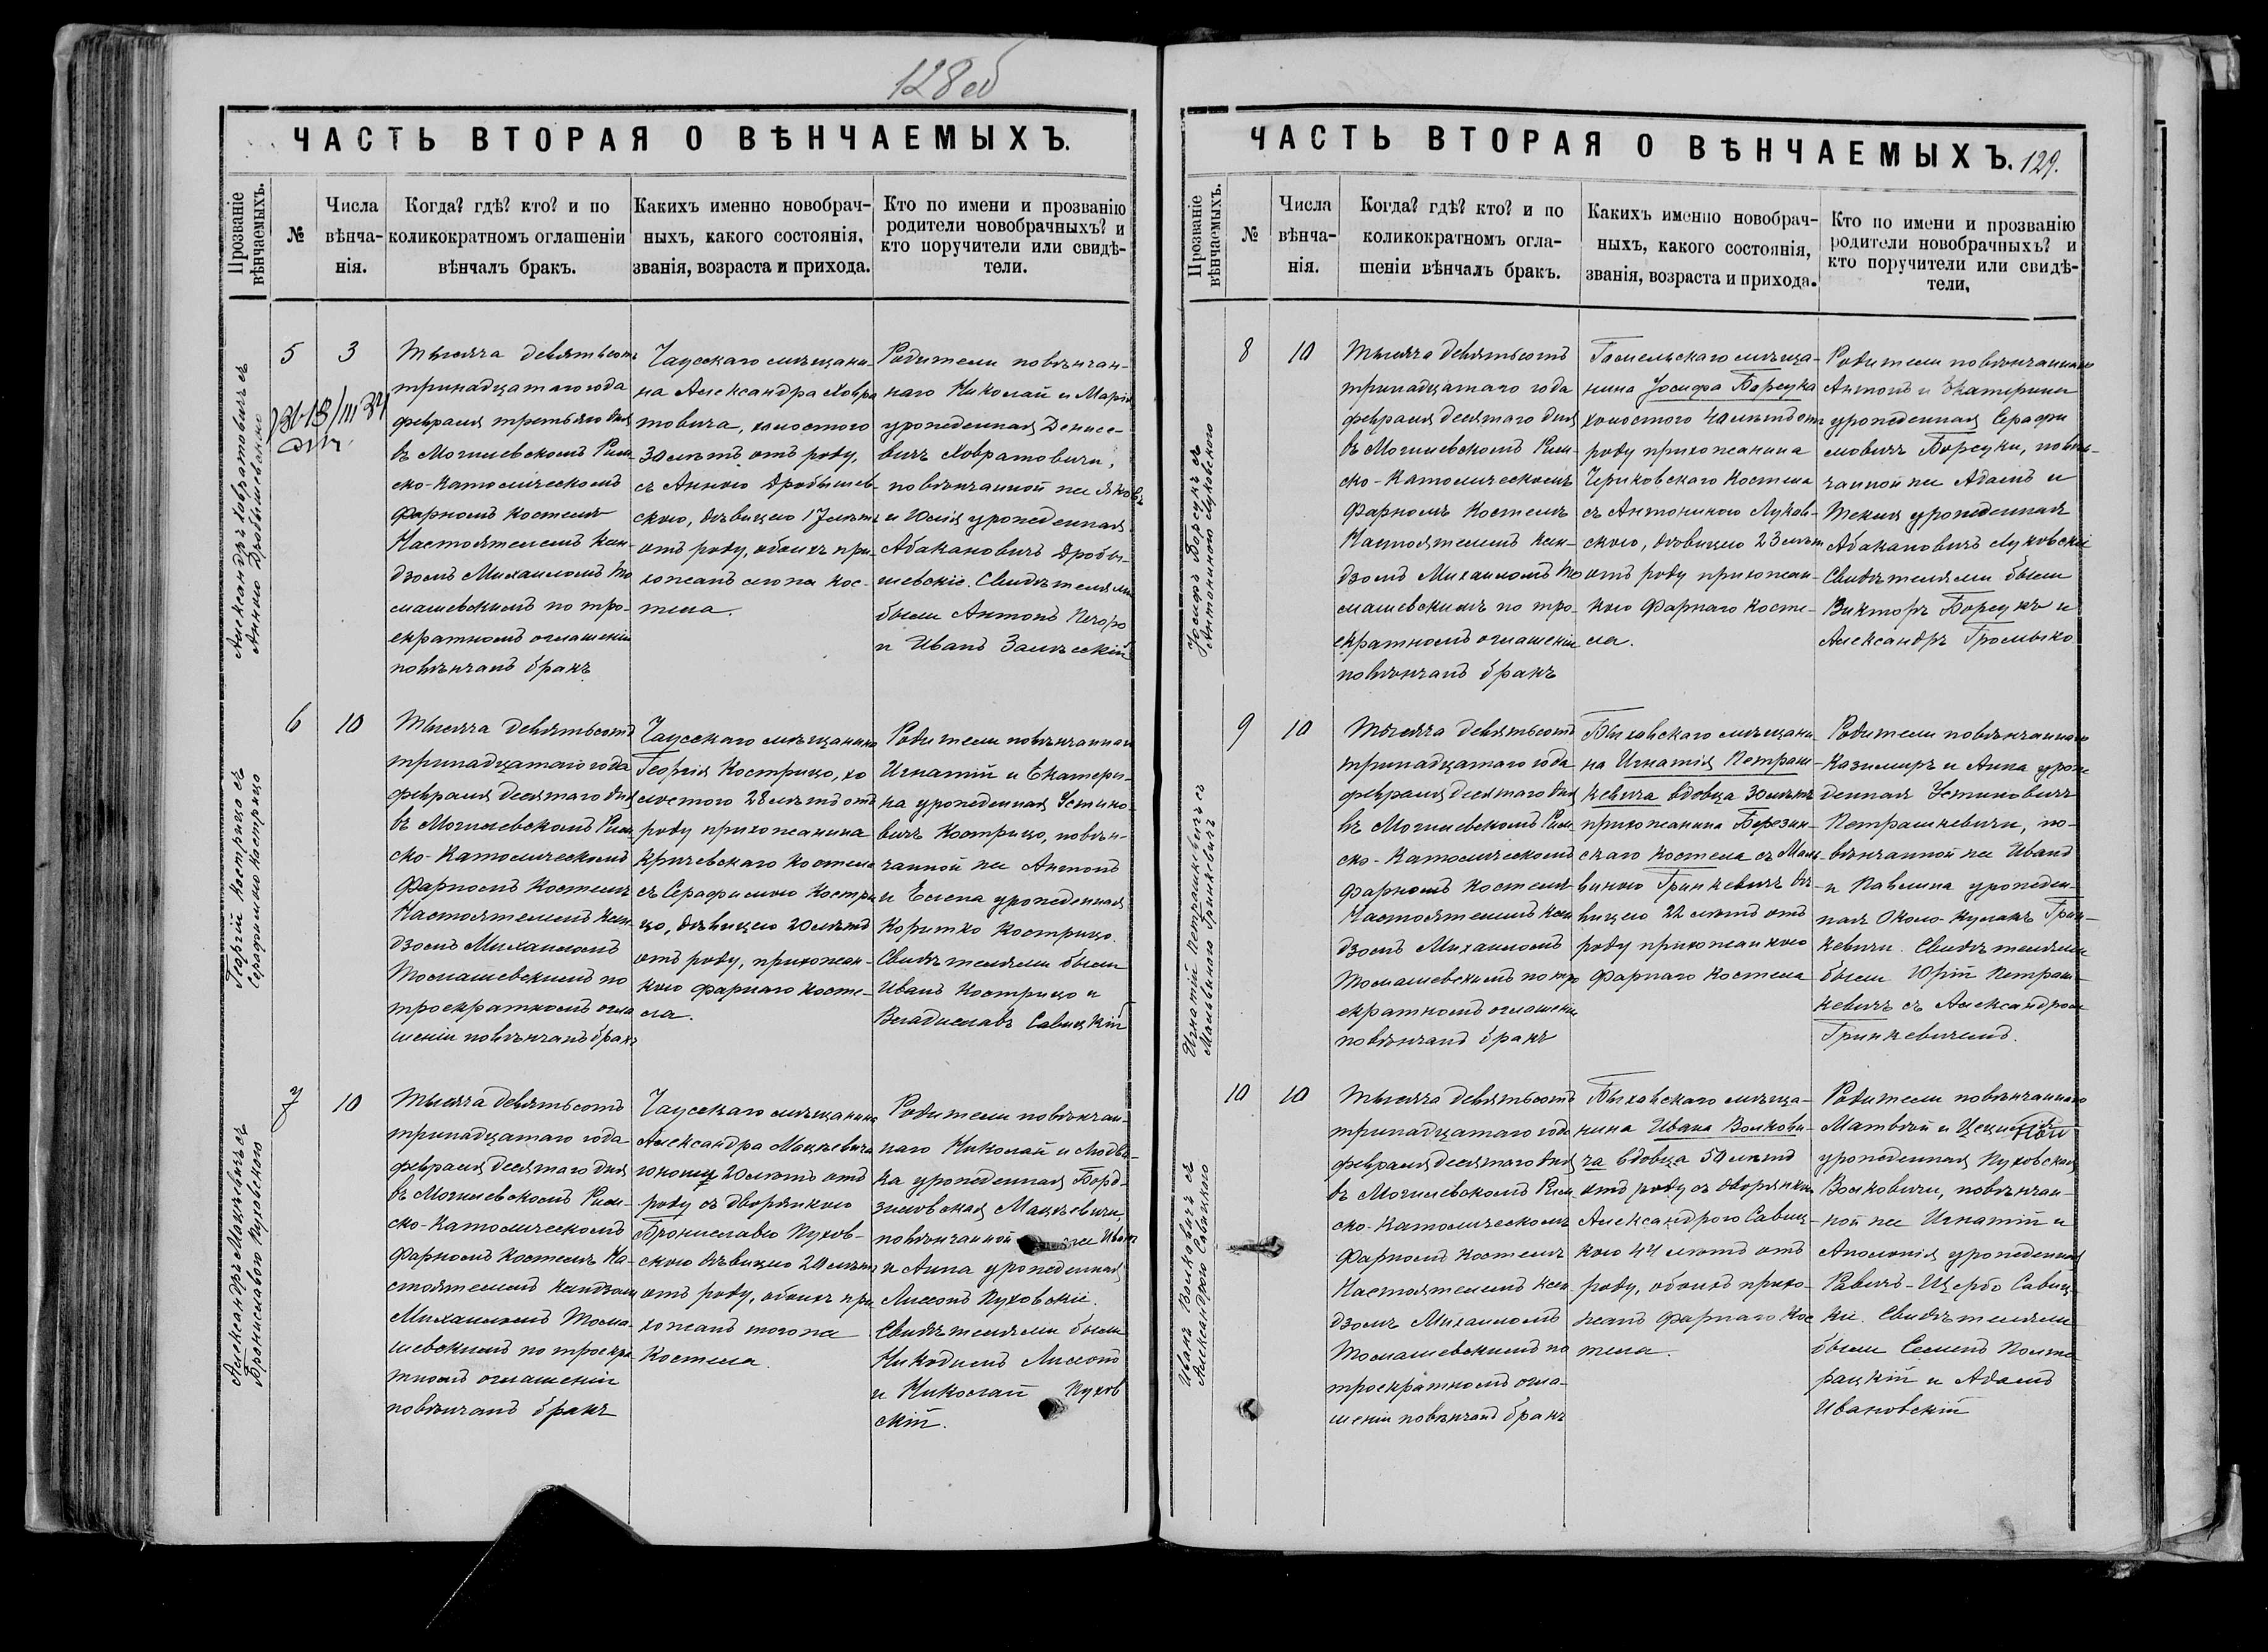 128 об
ЧАСТЬ ВТОРАЯ О ВѢНЧАЕМЫХЪ.
Прозваніе вѣнчаемыхъ.
№
Числа вѣнча-
нія.
Когда? гдѣ? кто? и по
коликократномъ оглашеніи
вѣнчалъ бракъ.
Какихъ именно новобрач-
ныхъ, какого состоянія,
званія, возраста и прихода.
Кто по имени и прозванію
родители новобрачныхъ? и
кто поручители или свидѣ-
тели.
Александръ Ховратовичъ съ
Анною Дробышевскою
5
3
Тысяча девятьсотъ
тринадцатаго года
февраля третьяго дня
въ Могилевскомъ Рим-
ско-Католическомъ
Фарномъ костелѣ
Настоятелемъ ксен-
дзомъ Михаиломъ То
машевскимъ по тро-
екратномъ оглашеніи
повѣнчанъ бракъ
Чаусскаго мѣщани-
на Александра Ховра
товича, холостого
30 лѣтъ отъ роду,
съ Анною Дробышев-
скою, дѣвицею 17 лѣтъ
отъ роду, обоихъ при-
хожанъ сего же кос-
тела.
Родители повѣнчан-
наго Николай и Марія
урожденная Денисе-
вичъ Ховратовичи,
повѣнчанной же Яковъ
и Юлія урожденная
Абакановичъ Дробы-
шевскіе. Свидѣтелями
были Антонъ
и Иванъ Залѣсскій
Георгій Кострицо съ
Серафимою Кострицо
6
10
Тысяча девятьсотъ
тринадцатаго года
февраля десятаго дня
въ Могилевскомъ Рим-
ско-Католическомъ
Фарномъ Костелѣ
Настоятелемъ ксен-
дзомъ Михаиломъ
Томашевскимъ по
троекратномъ огла
шеніи повѣнчанъ бракъ
Чаусскаго мѣщанина
Георгія Кострицо, хо
лостого 28 лѣтъ отъ
роду прихожанина
Кричевскаго костела
съ Серафимою Костри
цо, дѣвицею 20 лѣтъ
отъ роду, прихожан-
кою фарнаго косте-
ла.
Родители повѣнчаннаго
Игнатій и Екатери-
на урожденная Устино-
вичъ Кострицо, повѣн-
чанной же Антонъ
и Елена урожденная
Коритко Кострицо.
Свидѣтелями были
Иванъ Кострицо и
Владиславъ Савицкій
Александръ Мацкевичъ съ
Брониславою Пуховскою
7
10
Тысяча девятьсотъ
тринадцатаго года
февраля десятаго дня
въ Могилевскомъ Рим-
ско-Католическомъ
Фарномъ Костелѣ На-
стоятелемъ ксендзомъ
Михаиломъ Тома-
шевскимъ по троекра
тномъ оглашеніи
повѣнчанъ бракъ
Чаусскаго мѣщанина
Александра Мацкевича
юношу 20 лѣтъ отъ
роду съ дворянкою
Брониславою Пухов-
скою дѣвицею 20 лѣтъ
отъ роду, обоихъ при
хожанъ того же
Костела.
Родители повѣнчан-
наго Николай и Людви-
ка урожденная Борд-
зиловская Мацкевичи,
повѣнчанной же Иванъ
и Анна урожденная
Лиссопъ Пуховскіе.
Свидѣтелями были
Никодимъ Лиссопъ
и Николай Пухов
скій.
ЧАСТЬ ВТОРАЯ О ВѢНЧАЕМЫХЪ.
129.
Прозваніе вѣнчаемыхъ.
№
Числа вѣнча-
нія.
Когда? гдѣ? кто? и по
коликократномъ огла-
шеніи вѣнчалъ бракъ.
Какихъ именно новобрач-
ныхъ, какого состоянія,
званія, возраста и прихода.
Кто по имени и прозванію
родители новобрачныхъ? и
кто поручители или свидѣ-
тели,
Іосифъ Борсукъ съ
Антониною Луковскою
8
10
Тысяча девятьсотъ
тринадцатаго года
февраля десятаго дня
въ Могилевскомъ Рим-
ско-Католическомъ
Фарномъ Костелѣ
Настоятелемъ ксен-
дзомъ Михаиломъ То
машевскимъ по тро-
екратномъ оглашеніи
повѣнчанъ бракъ
Гомельскаго мѣща-
нина Іосифа Борсука
холостого 40 лѣтъ отъ
роду прихожанина
Чериковскаго Костела
съ Антониною Луков-
скою, дѣвицею 23 лѣтъ
отъ роду прихожан-
кою Фарнаго Косте-
ла.
Родители повѣнчаннаго
Антонъ и Екатерина
урожденная Серафи
мовичъ Борсуки, повѣн-
чанной же Адамъ и
Текля урожденная
Абакановичъ Луковскіе
Свидѣтелями были
Викторъ Борсукъ и
Александръ Громыко
Игнатій Петрашкевичъ съ
Мальвиною Гринкевичъ
9
10
Тысяча девятьсотъ
тринадцатаго года
февраля десятаго дня
въ Могилевскомъ Рим-
ско-Католическомъ
Фарномъ Костелѣ
Настоятелемъ ксен
дзомъ Михаиломъ
Томашевскимъ по тро
екратномъ оглашеніи
повѣнчанъ бракъ
Быховскаго мѣщани-
на Игнатія Петраш-
кевича вдовца 30 лѣтъ
прихожанина Березин-
скаго Костела съ Маль-
виною Гринкевичъ дѣ-
вицею 22 лѣтъ отъ
роду прихожанкою
Фарнаго Костела
Родители повѣнчаннаго
Казимиръ и Анна урож
денная Устиновичъ
Петрашкевичи, по-
вѣнчанной же Иванъ
и Павлина урожден-
ная Около-Кулакъ Грин-
кевичи. Свидѣтелями
были Юрій Петраш-
кевичъ съ Александромъ
Гринкевичемъ.
Иванъ Волковичъ съ
Александрою Савицкою
10
10
Тысяча девятьсотъ
тринадцатаго года
февраля десятаго дня
въ Могилевскомъ Рим
ско-Католическомъ
Фарномъ Костелѣ
Настоятелемъ ксен-
дзомъ Михаиломъ
Томашевскимъ по
троекратномъ огла-
шеніи повѣнчанъ бракъ
Быховскаго мѣща-
нина Ивана Волкови-
ча вдовца 50 лѣтъ
отъ роду съ дворянкою
Александрою Савиц-
кою 44 лѣтъ отъ
роду, обоихъ прихо-
жанъ фарнаго Кос
тела.
Родители повѣнчаннаго
Матвѣй и Цецилія
урожденная Пуховская
Волковичи, повѣнчан-
ной же Игнатій и
Аполонія урожденная
Равичъ-Щербо Савиц-
кіе. Свидѣтелями
были Семенъ Полто
рацкій и Адамъ
Ивановскій